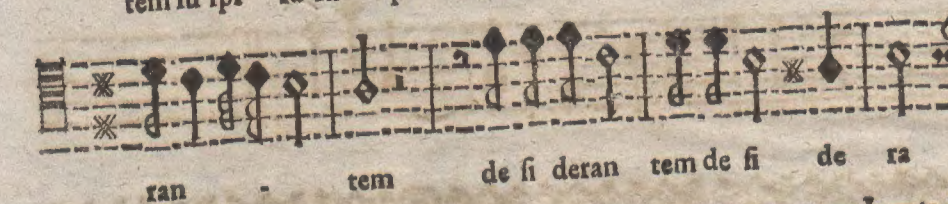 ran - tem de si deran tem de si de ra